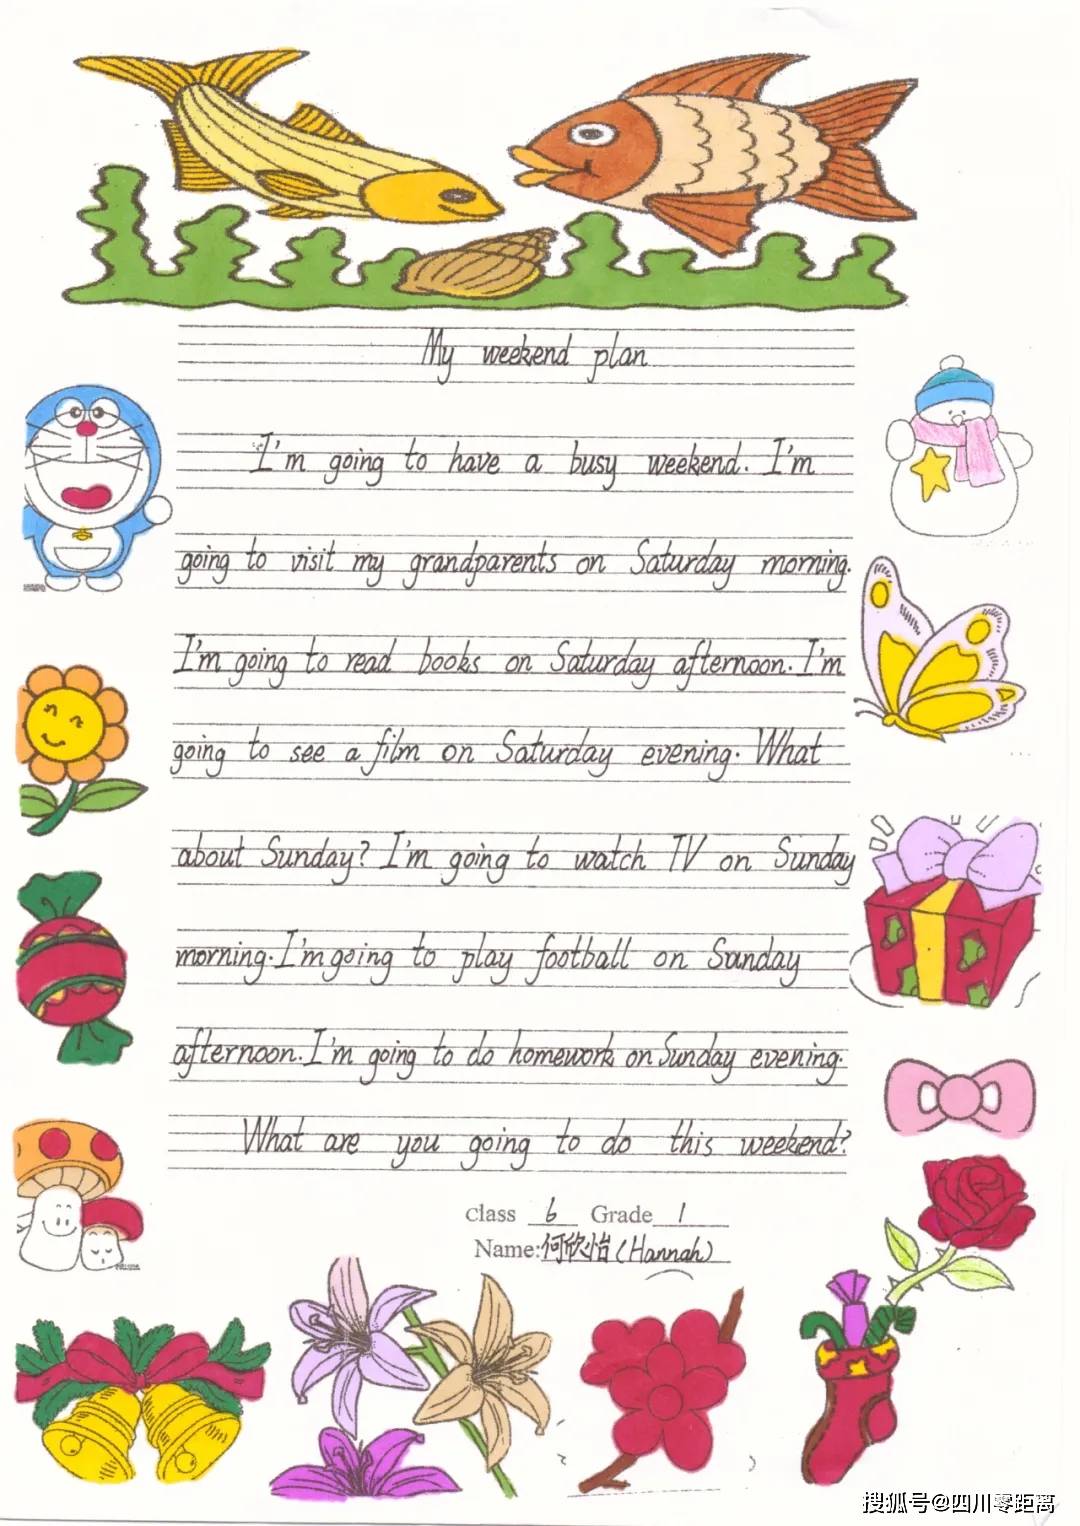 My weekend plan
I'm going to have a busy weekend. I'm
going to visit my grandparents on Saturday morning.
I'm going to read books on Saturday afternoon. I'm
going to see a film on Saturday evening. What
about Sunday? I'm going to watch TV on Sunday
morning. I'm going to play football on Sunday
afternoon. I'm going to do homework on Sunday evening.
What are you going to do this weekend?
class 6 Grade 1
Name: 何欣怡 (Hannah)
搜狐号@四川零距离